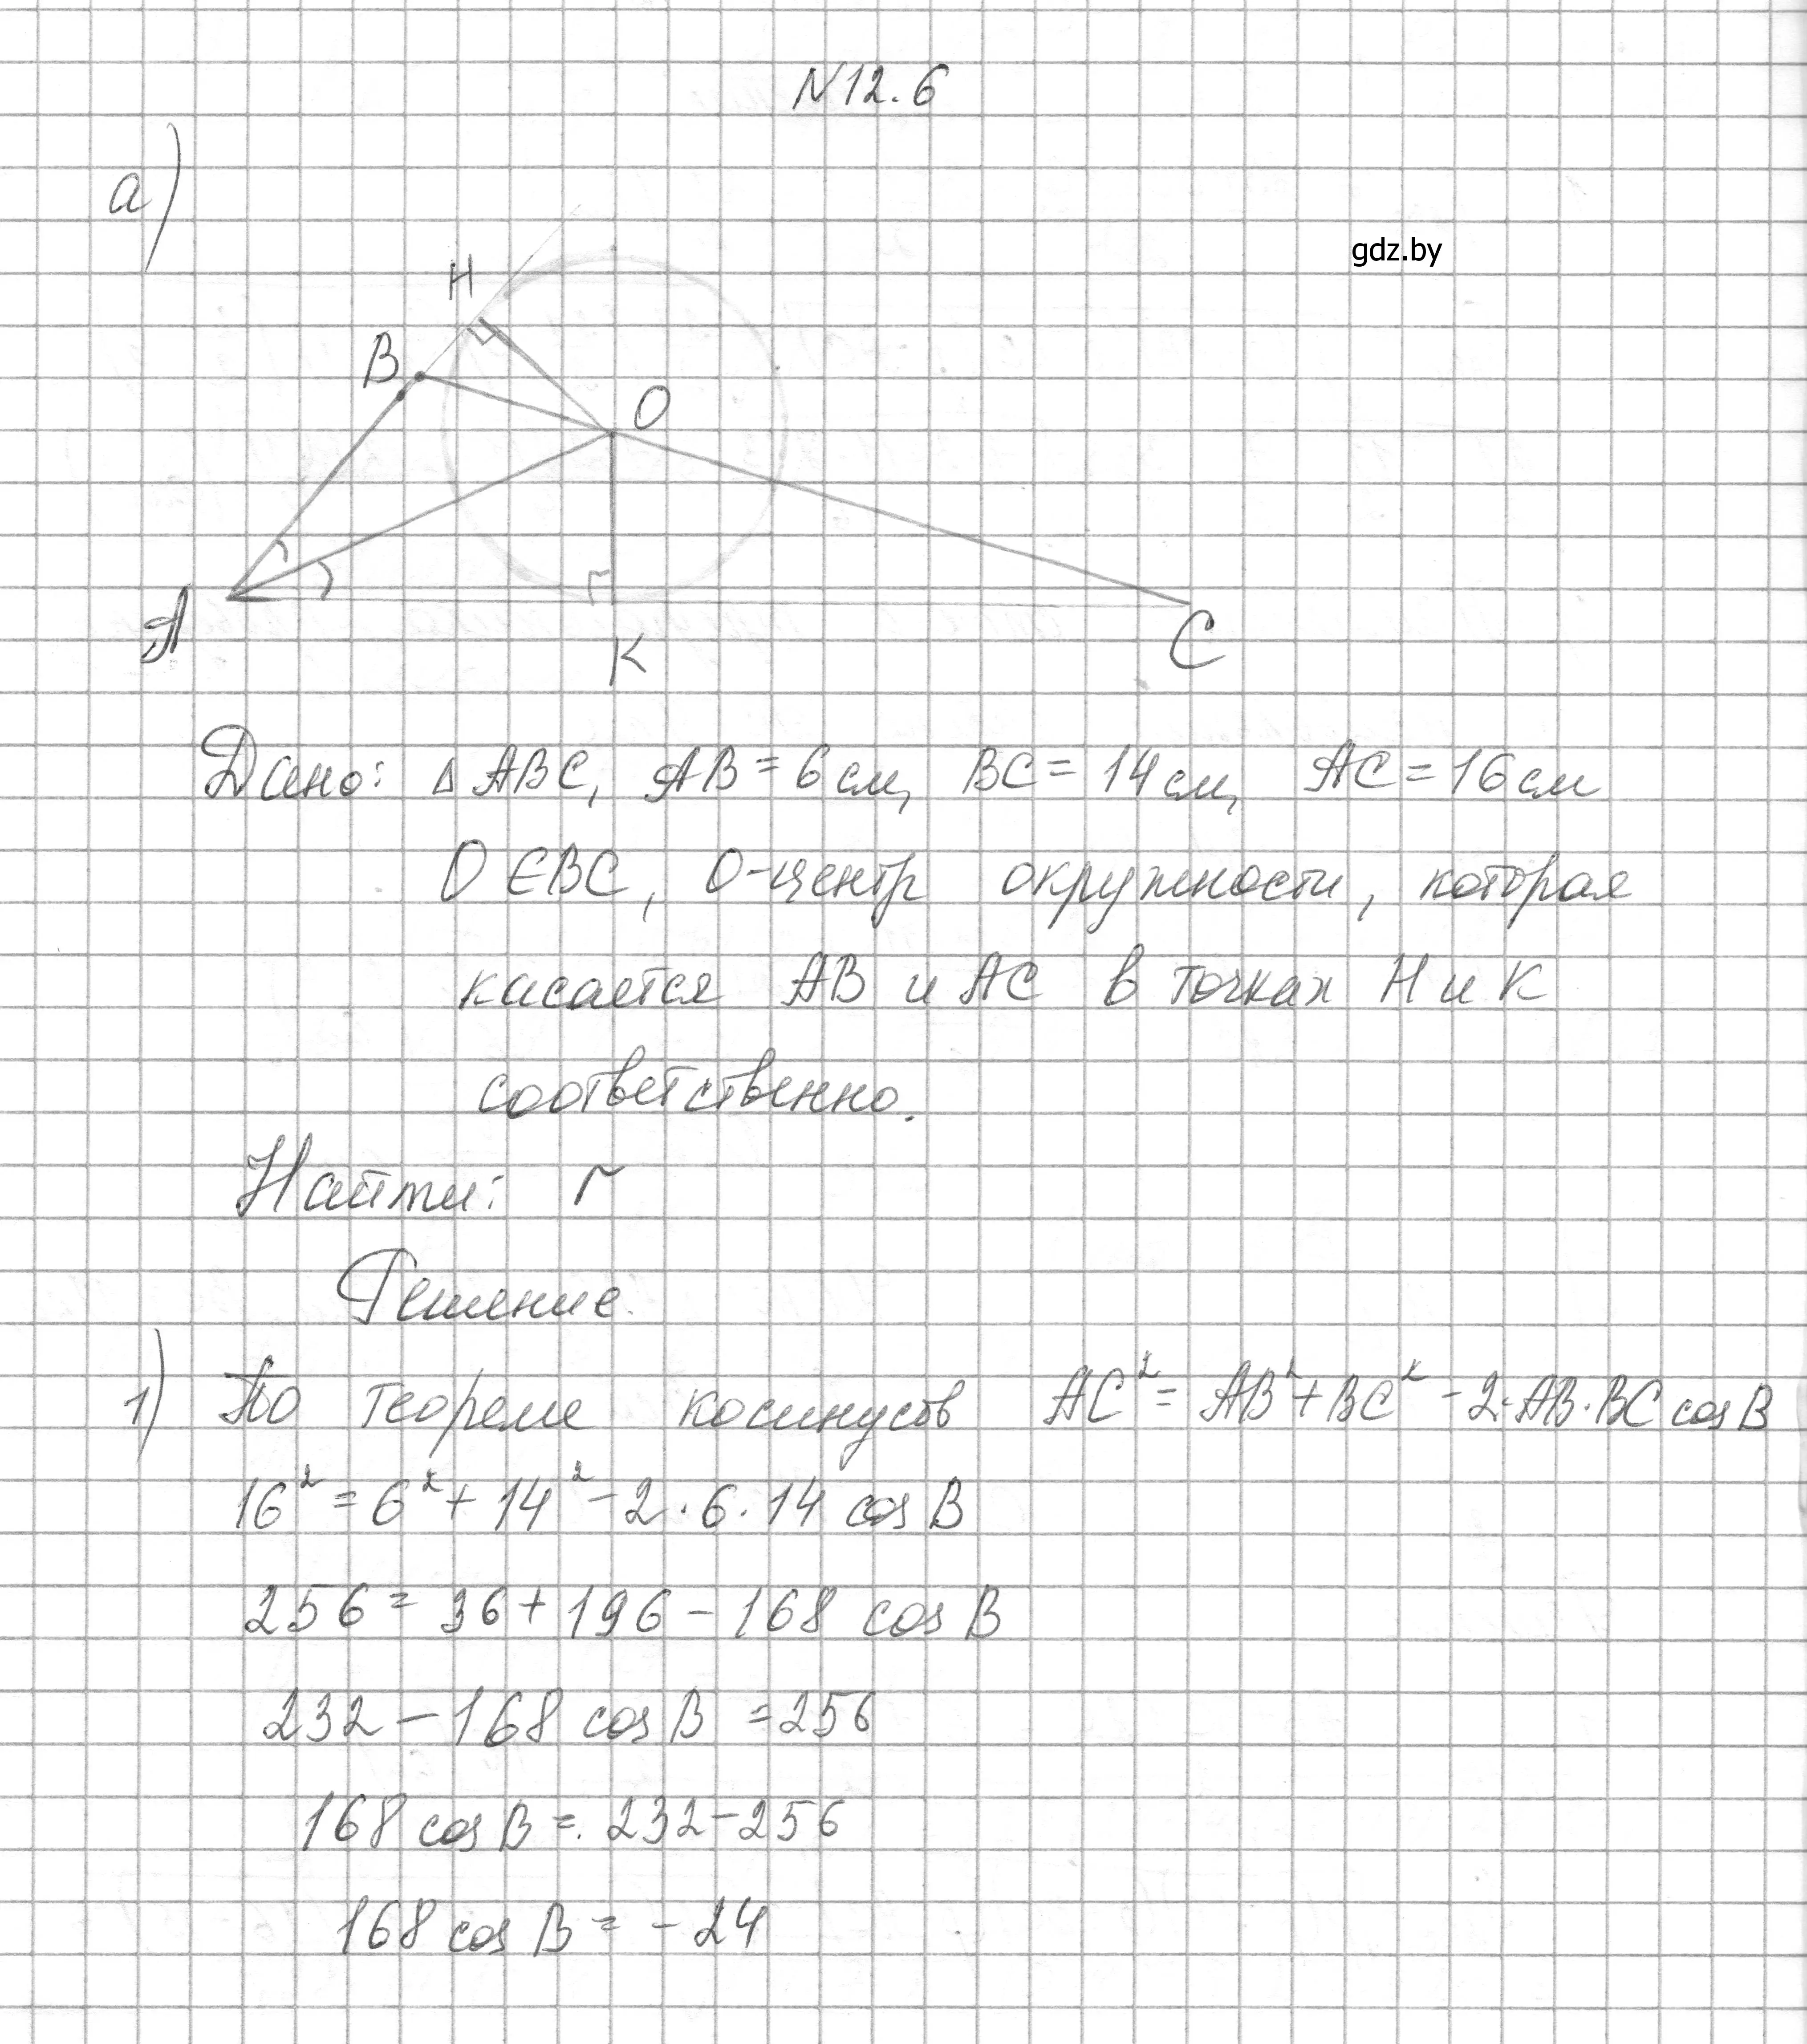 N12.6
а)
gdz.by
H
B
O
A
K
C
Дано: △ABC, AB = 6 см, BC = 14 см, AC = 16 см
O ∈ BC, O-центр окружности, которая
касается AB и AC в точках H и K
соответственно.
Найти: r
Решение.
1) По теореме косинусов AC² = AB² + BC² - 2·AB·BC cos B
16² = 6² + 14² - 2·6·14 cos B
256 = 36 + 196 - 168 cos B
232 - 168 cos B = 256
168 cos B = 232 - 256
168 cos B = -24